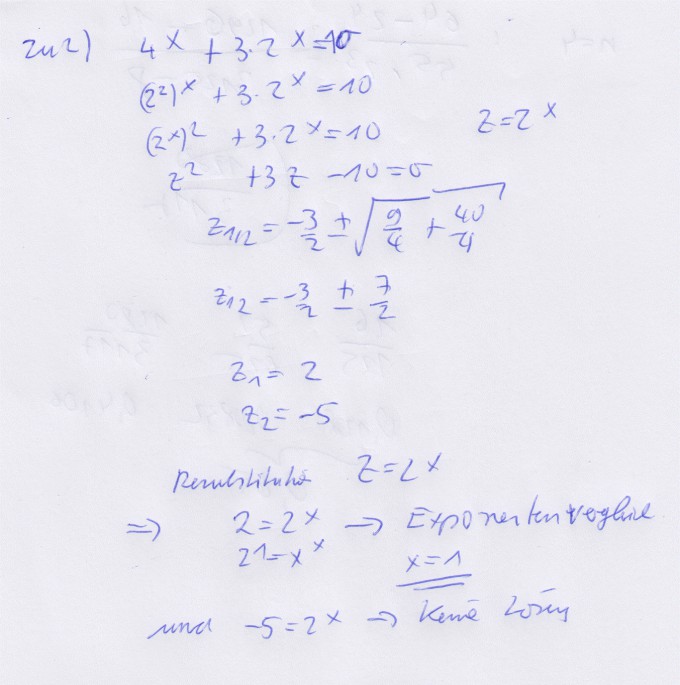 zu 2) 4^x + 3·2^x = 10
(2²)^x + 3·2^x = 10
(2^x)² + 3·2^x = 10 z = 2^x
z² + 3z - 10 = 0
z_1/2 = -3/2 ± √(9/4 + 40/4)
z_12 = -3/2 ± 7/2
z_1 = 2
z_2 = -5
z = 2^x
⇒ 2 = 2^x → Exponentenvergleich
2^1 = x^x x = 1
und -5 = 2^x → Keine Lösung